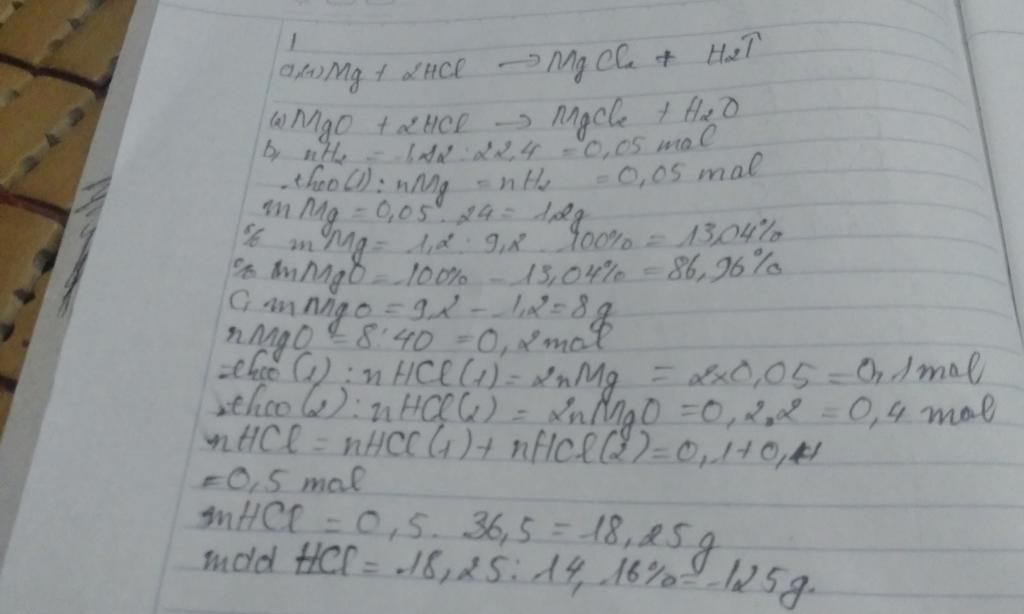 1
a, (1) Mg + 2HCl → MgCl2 + H2↑
(2) MgO + 2HCl → MgCl2 + H2O
b, nH2 = 1,12 : 22,4 = 0,05 mol
theo (1) : nMg = nH2 = 0,05 mol
mMg = 0,05 . 24 = 1,2g
% mMg = 1,2 : 9,2 . 100% = 13,04%
% mMgO = 100% - 13,04% = 86,96%
C, mMgO = 9,2 - 1,2 = 8g
nMgO = 8 : 40 = 0,2 mol
theo (1) : nHCl (1) = 2nMg = 2x0,05 = 0,1 mol
theo (2) : nHCl (2) = 2nMgO = 0,2.2 = 0,4 mol
nHCl = nHCl (1) + nHCl (2) = 0,1 + 0,4
= 0,5 mol
mHCl = 0,5 . 36,5 = 18,25 g
mdd HCl = 18,25 : 14,16% = 125g.